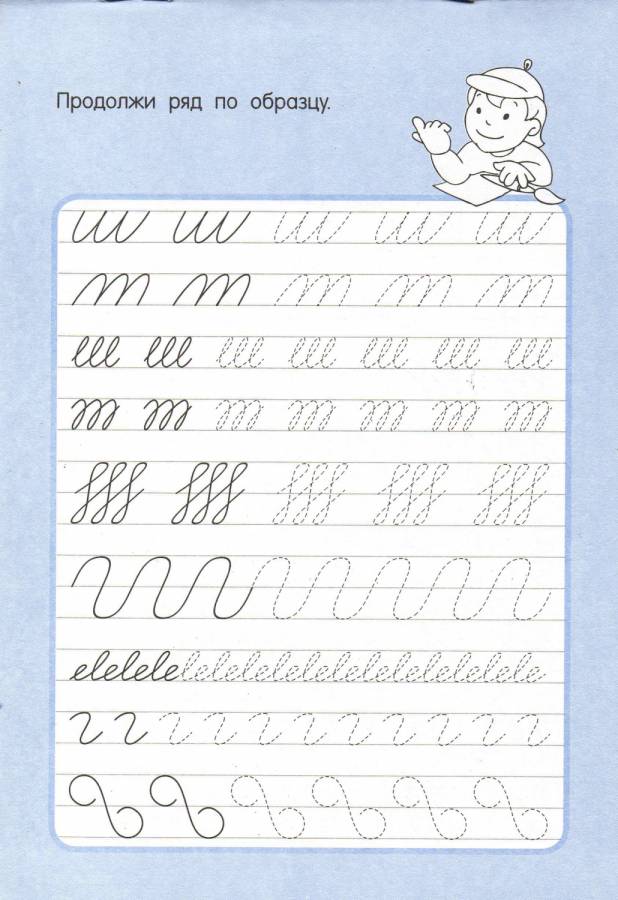 Продолжи ряд по образцу.